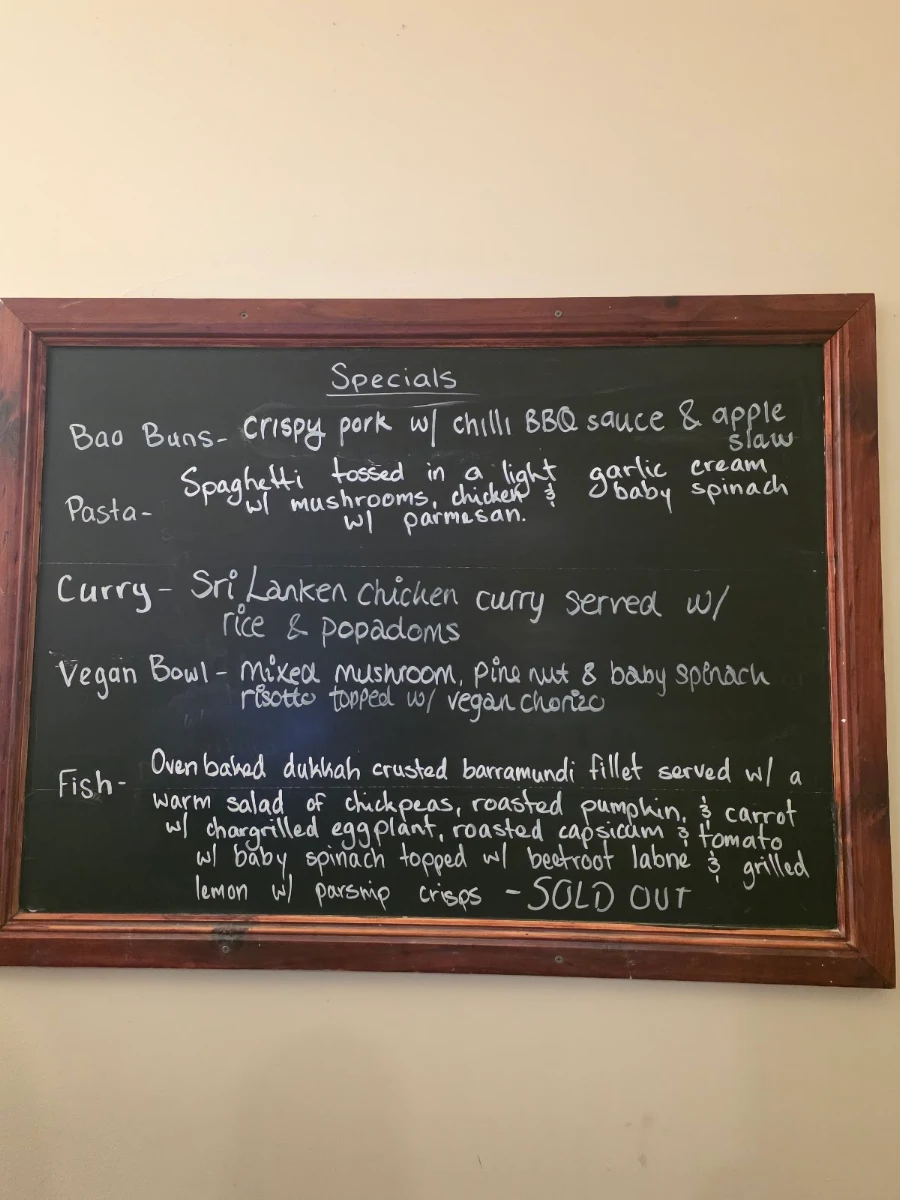 Specials
Bao Buns- crispy pork w/ chilli BBQ sauce & apple
slaw
Spaghetti tossed in a light garlic cream
w/ mushrooms, chicken & baby spinach
Pasta- w/ parmesan.
Curry- Sri Lanken chicken curry served w/
rice & popadoms
Vegan Bowl- mixed mushroom, pine nut & baby spinach
risotto topped w/ vegan chorizo
Fish- Oven baked dukkah crusted barramundi fillet served w/ a
warm salad of chickpeas, roasted pumpkin, & carrot
w/ chargrilled eggplant, roasted capsicum & tomato
w/ baby spinach topped w/ beetroot labne & grilled
lemon w/ parsnip crisps - SOLD OUT